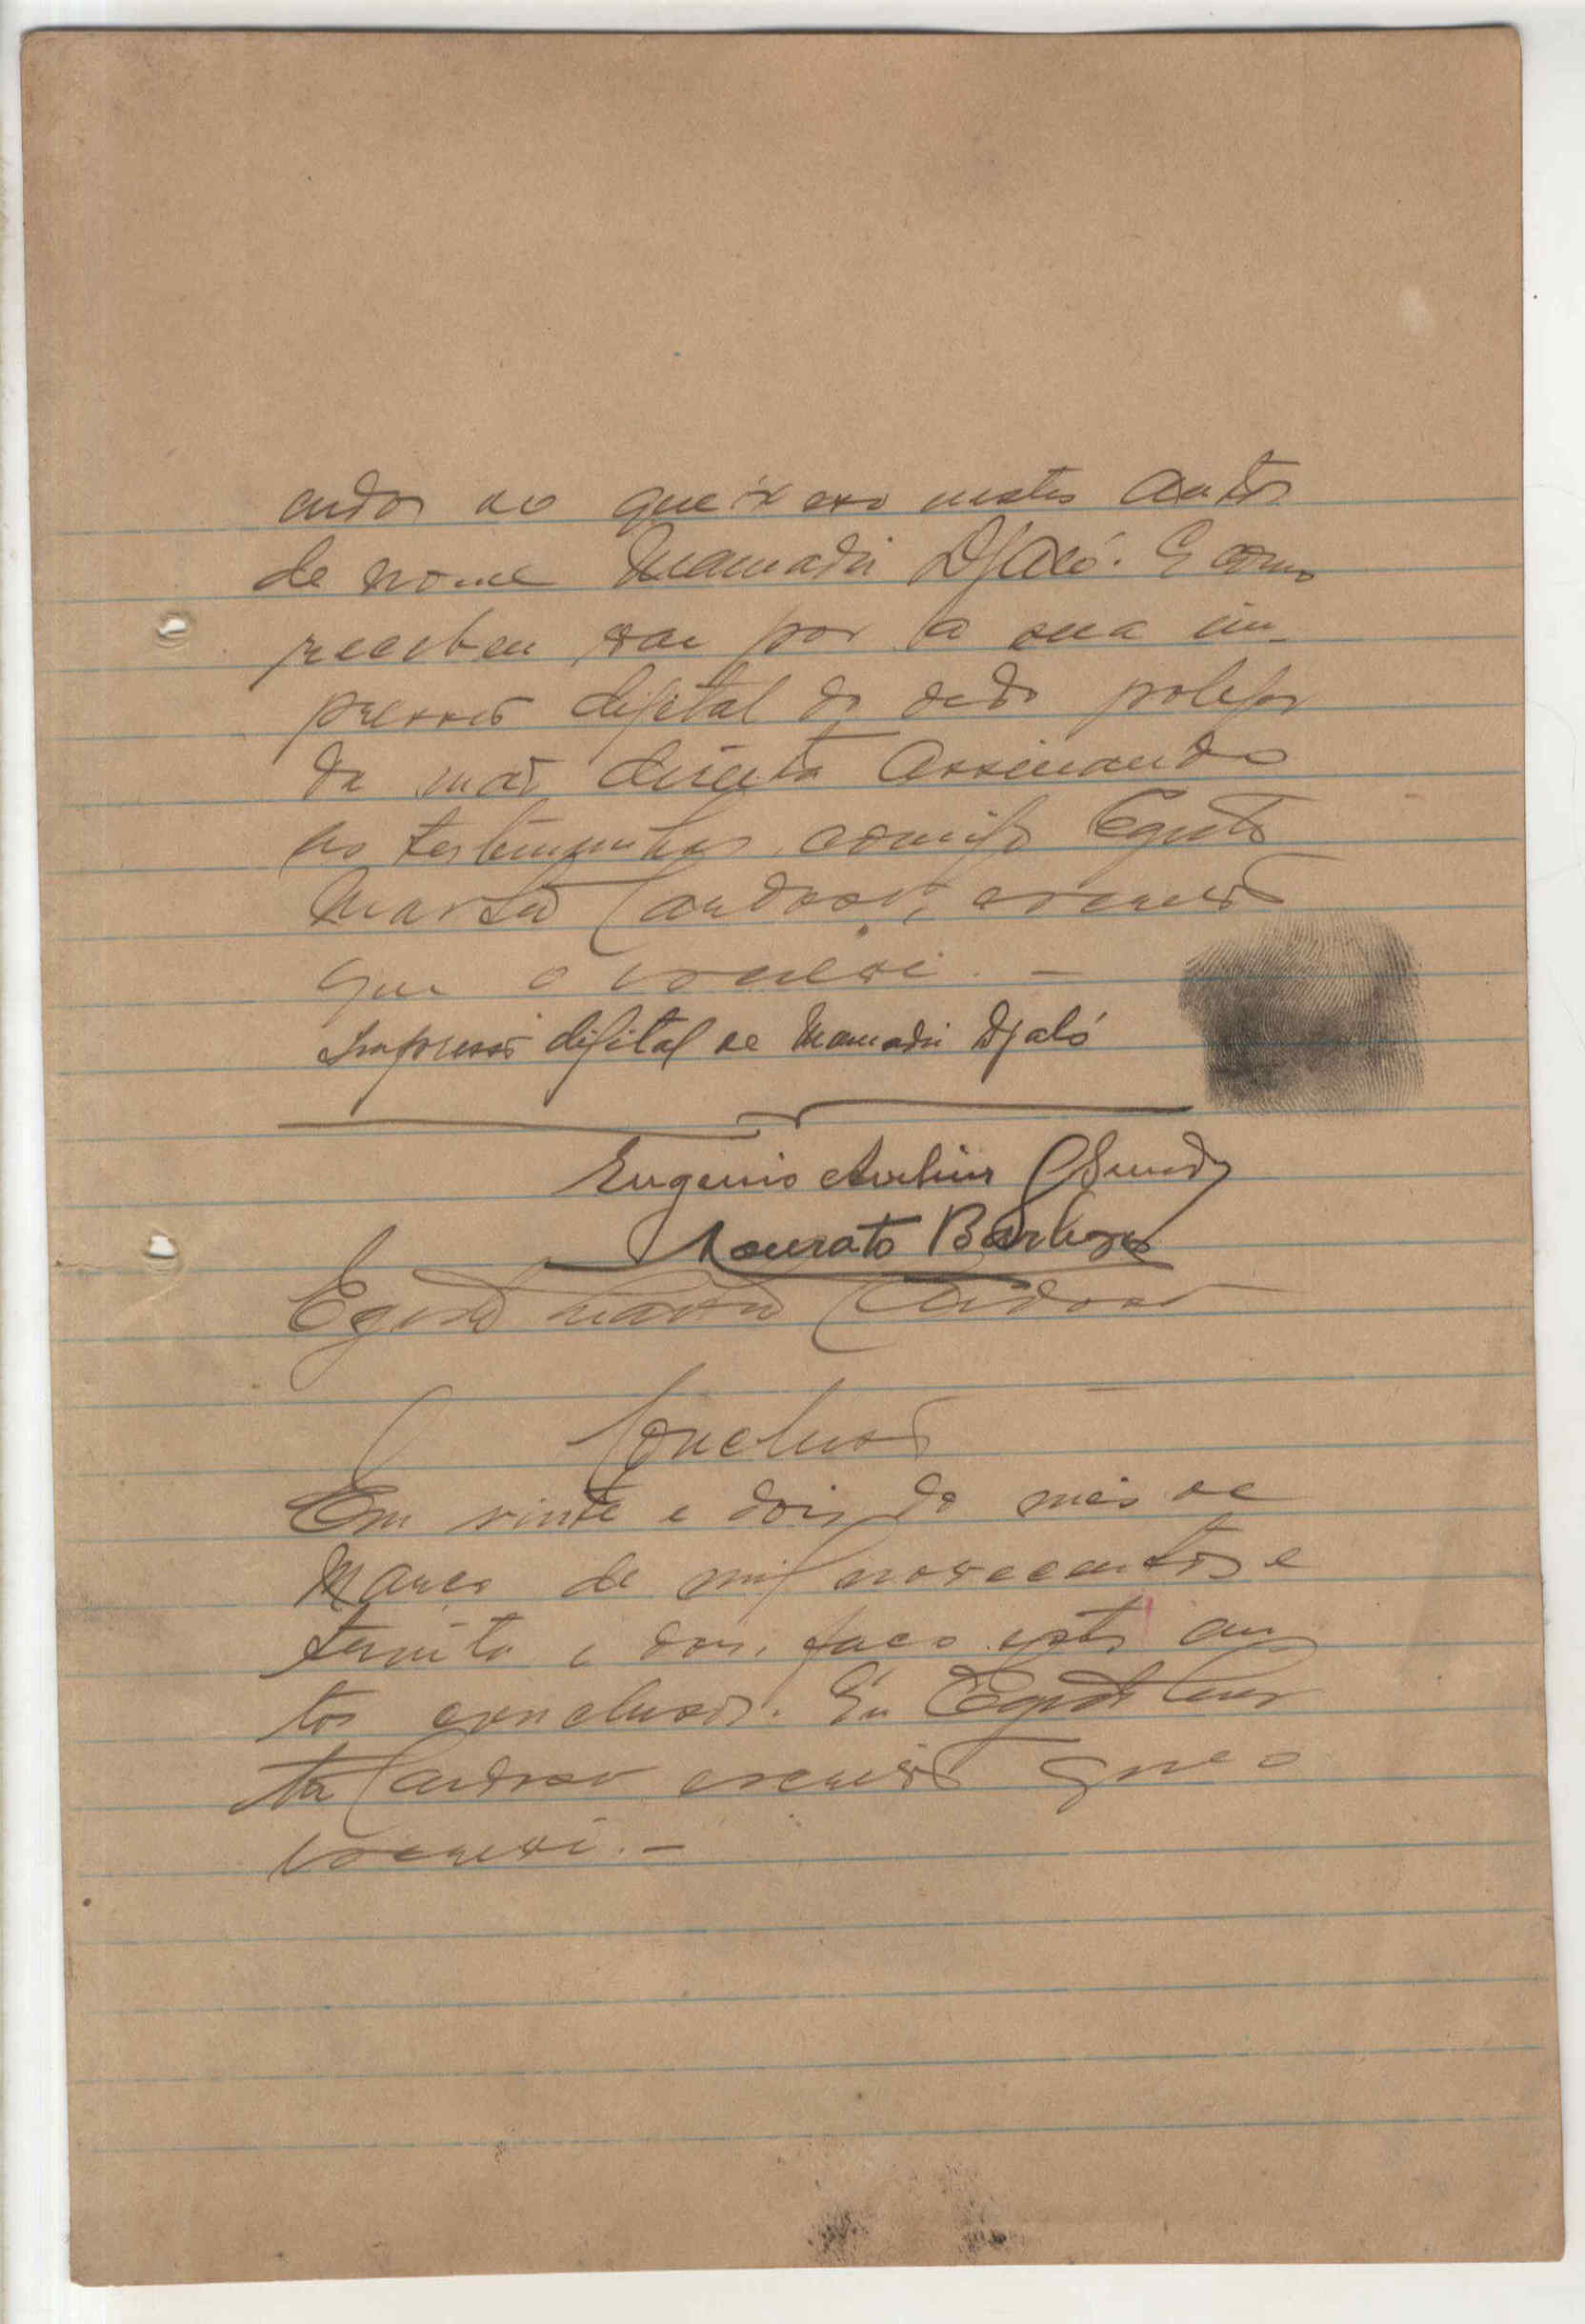 cudos ao queixoso nestes autos
de nome Mamadú Djaló. E como
recebeu vae por a sua im-
pressão digital do dedo polegar
da mão direita assinando
as testemunhas, comigo Egidio
Martid Cardoso, escrivão
que o escrevi. —
Impressão digital de Mamadú Djaló
Eugenio Avelino
Lourato Barboza
Cardoso
Conclusão
Em vinte e dois do mês de
Março de mil novecentos e
trinta e dois, faço estes au
tos conclusos. Eu
Cardoso escrivão que o
escrevi. —